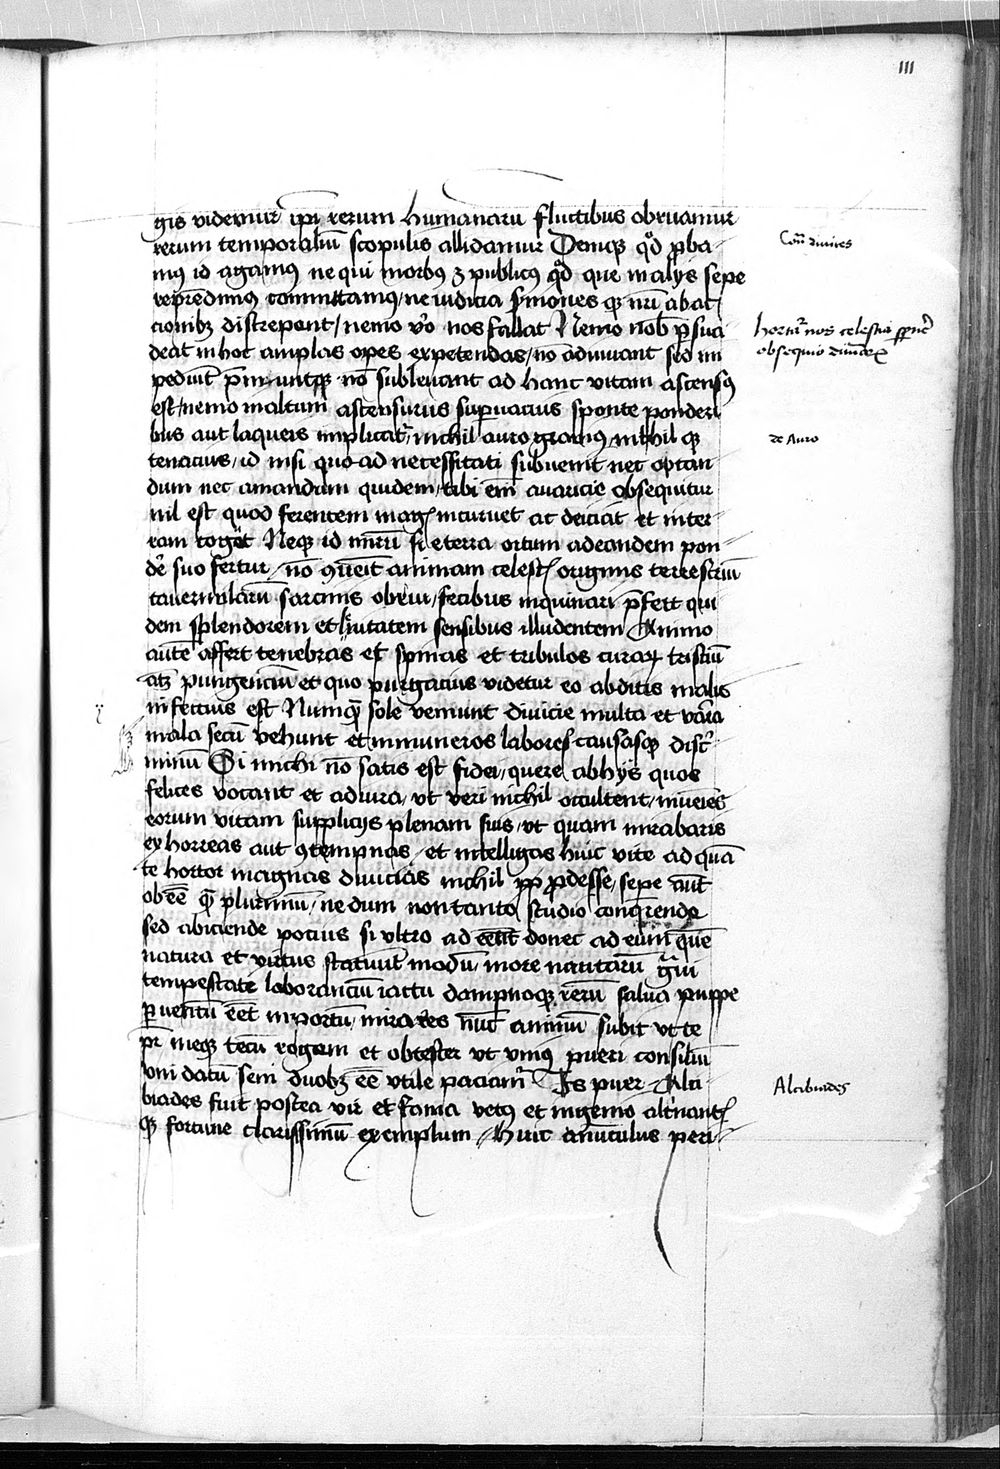 III
gis videmur ipi rerum humanaru fluctibus obruamur
rerum temporaliu scopulis allidamur Demqz qd pba
mus id agamus ne qui morbus publicus qd que in alijs sepe
repredimus committamus ne iudicia smones qz nri abac
cionibz discrepent nemo vo nos fallat Nemo nob psua
deat in hoc amplas opes expetendas no adiuuant sed im
pediut pmuntqz no subleuant ad hanc vitam ascensus
est nemo in altum ascensurus supuacuis sponte ponderi
bus aut laqueis implicat nichil auro grauius nichil qz
tenacius id nisi quo ad necessitati subuenit nec optan
dum nec amandum quidem ubi em auaricie obsequitur
nil est quod ferentem mag incuruet ac deiciat et inter
ram coget Neqz id miru si e terra ortum ad eandem pon
de suo fertur no queit animam celest originis terrestriu
cauernularu sarcinis obrui fecibus inquinari pfert qui
dem splendorem et sensibus illudentem Animo
aute affert tenebras et spinas et tribulos curar tristiu
atz pungenciu et quo purgacius videtur eo abditis malis
infectius est Numq sole veniunt diuicie multa et varia
mala secu vehunt et innumeros labores causasqz disc
minu Si michi no satis est fidei quere ab hijs quos
felices vocant et adiura vt veri nichil occultent inuenies
eorum vitam supplicijs plenam suis vt quam mirabaris
exhorreas aut gtempnas et intelligas huic vite ad qua
te hortor magnas diuicias nichil pp pdesse sepe aut
obee q plurimu nedum non tanto studio conqrende
sed abiciende pocius si vltro ad eent donec ad eum que
natura et virtus statuut modu more nautaru gui
tempestate laboranciu iactu dampnoqz reru salua puppe
puentu eet in portu mira res nuc animu subit vt te
pr meqz tecu rogem et obtester vt vnius pueri consiliu
vni datu seni duobz ee vtile paciam Is puer Alci
biades fuit postea vir et fama vetus et ingenio alnant
qz fortune clarissimu exemplum Huic auuculus peri
Con diuites
hortat nos celestia
obsequio
de Auro
Alcibiades